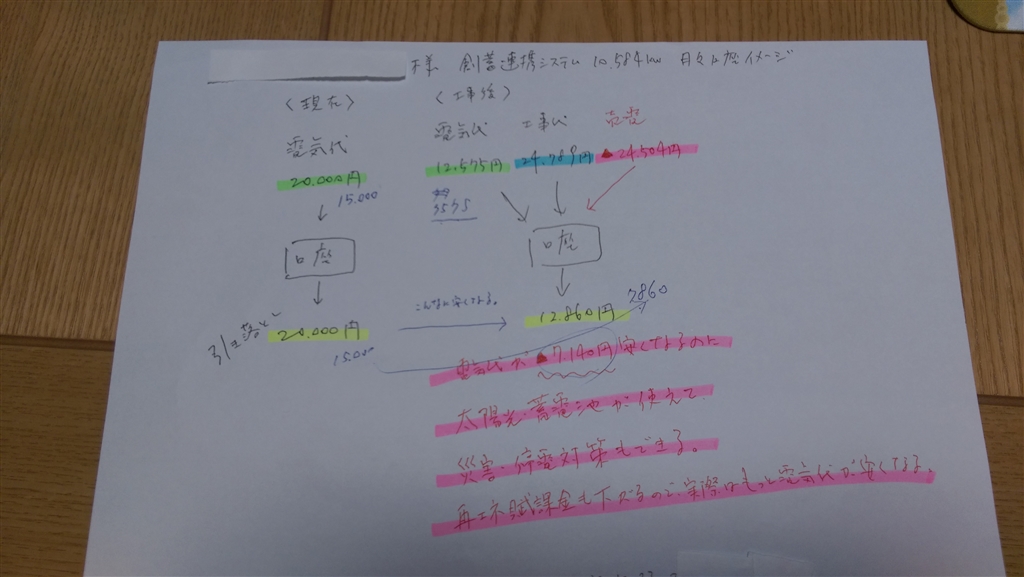 様 創蓄連携システム 10.584kw 月々お支払イメージ
〈現在〉
電気代
20.000円
15.000
口座
引き落とし
20.000円
15.000
〈工事後〉
電気代 工事代 売電
12.575円 24.789円 ▲24.504円
7575
口座
こんなに安くなる。
12.860円
7860
電気代が▲7.140円安くなるのに
太陽光・蓄電池が使えて
災害・停電対策もできる。
再エネ賦課金も下がるので、実際はもっと電気代が安くなる。